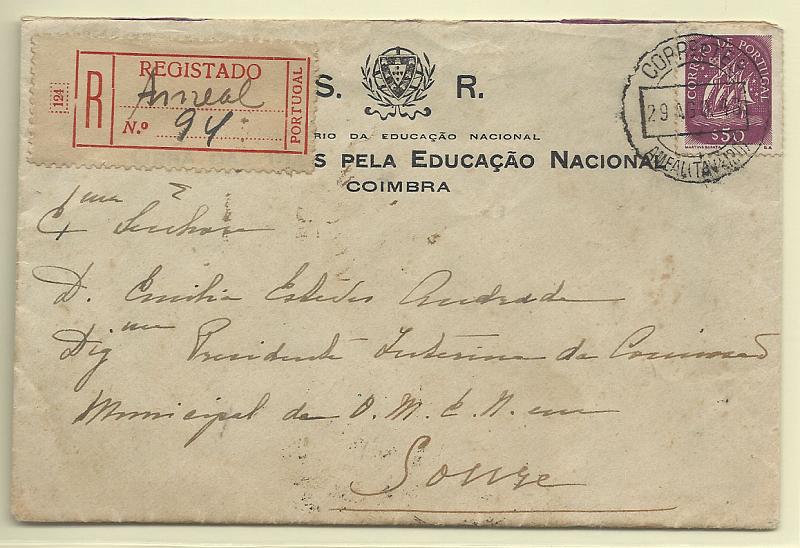 REGISTADO
R
Anzeal
N.º 94
PORTUGAL
124
S. R.
RIO DA EDUCAÇÃO NACIONAL
S PELA EDUCAÇÃO NACIONAL
COIMBRA
CORREIO DE PORTUGAL
$50
CORREIOS
29
Exma Senhora
D. Emilia Esteves Andrade
Digma Presidente Interina da Comissão
Municipal da O. M. E. N. em
Soure